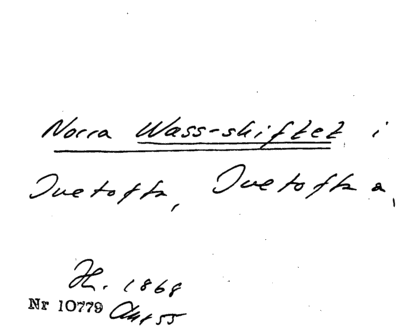 Norra Wass-skiftet i
Ivetofta, Ivetofta s,
H. 1868
Nr 10779